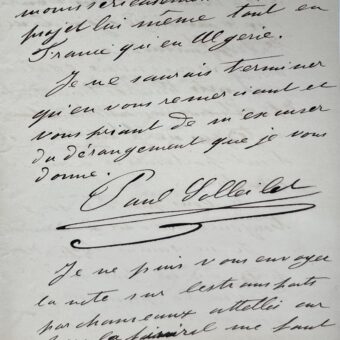 projet lui même tout en
France qu'en Algérie.
Je ne saurais terminer
qu'en vous remerciant et
vous priant de m'excuser
du dérangement que je vous
donne.
Paul Soleillet
Je ne puis vous envoyer
la note sur les transports
par chameaux attelés car
me faut